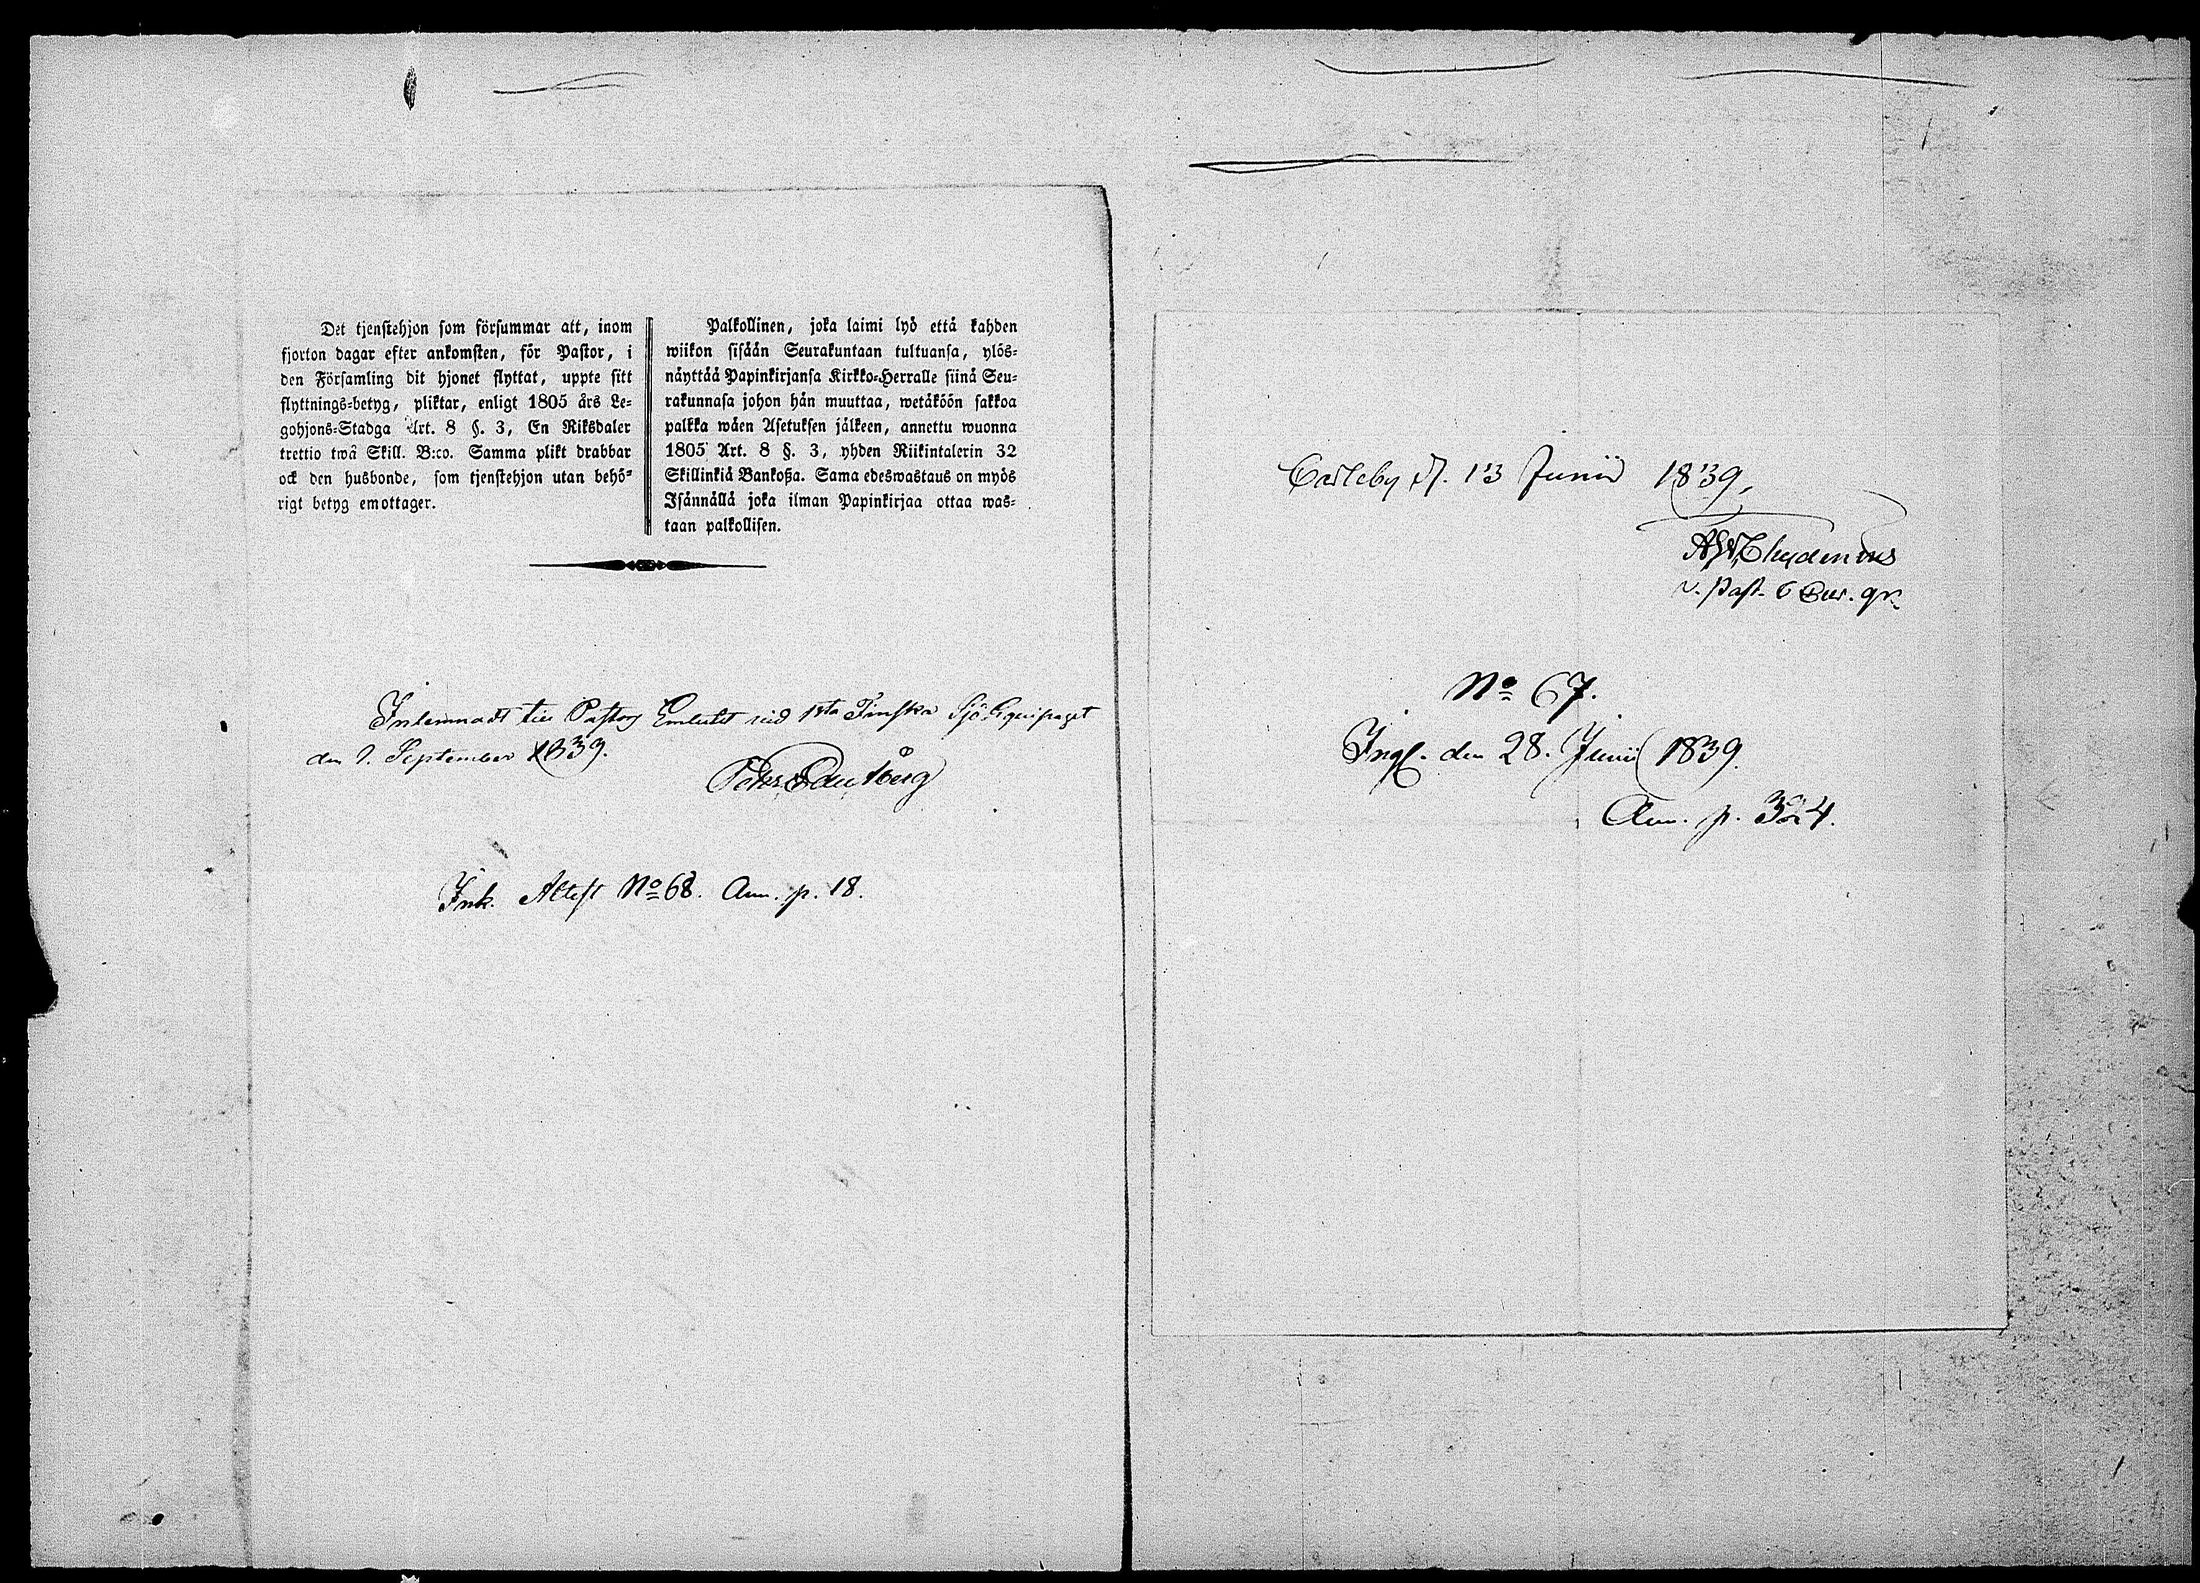 Det tjenstehjon som försummar att, inom
fjorton dagar efter ankomsten, för Pastor, i
den Församling dit hjonet flyttat, uppte sitt
flyttnings-betyg, pliktar, enligt 1805 års Le-
gohjons-Stadga Art. 8 §. 3, En Riksdaler
trettio twå Skill. B:co. Samma plikt drabbar
ock den husbonde, som tjenstehjon utan behö-
rigt betyg emottager.
Palkollinen, joka laimi lyö että kahden
wiikon sisään Seurakuntaan tultuansa, ylös-
näyttää Papinkirjansa Kirkko-Herralle siinä Seu-
rakunnasa johon hän muuttaa, wetäköön sakkoa
palkka wäen Asetuksen jälkeen, annettu wuonna
1805 Art. 8 §. 3, yhden Riikintalerin 32
Skillinkiä Bankoßa. Sama edeswastaus on myös
Isännällä joka ilman Papinkirjaa ottaa was-
taan palkollisen.
Inlemnadt till Pastors Embetet vid 1sta Finska Sjö Equipaget
den 9. September 1839.
Ink. Attest No 68. Ann. p. 18.
Carleby d. 13 Junii 1839,
Chydenius
v. Past. &
No 67.
Ingl. den 28. Junii 1839.
Ann. p. 324.